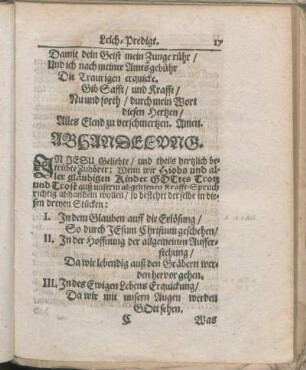 Leich-Predigt. 17
Damit dein Geist mein Zunge rühr /
Und ich nach meiner Amts gebühr
Die Traurigen erquicke.
Gib Safft / und Krafft /
Nu und forth / durch mein Wort
diesen Hertzen /
Alles Elend zu verschmertzen. Amen.
ABHANDELUNG.
IN JESU Geliebte / und theils hertzlich be-
trübte Zuhörer: Wenn wir Hiobs und al-
ler gläubigen Kinder GOTTes Trotz
und Trost auß unserm abgelesenen Krafft-Spruch
richtig abhandeln wollen / so bestehet derselbe in die-
sen dreyen Stücken:
I. In dem Glauben auff die Erlösung /
So durch JEsum Christum geschehen /
II. In der Hoffnung der allgemeinen Auffer-
stehung /
Da wir lebendig auß den Gräbern wer-
den hervor gehen.
III. In des Ewigen Lebens Erquickung /
Da wir mit unsern Augen werden
GOtt sehen.
C Was